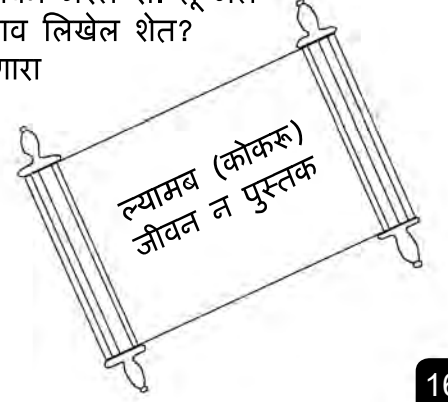 ाव लिखेल शेत?
ारा
ल्यामब (कोकरू)
जीवन न पुस्तक
16